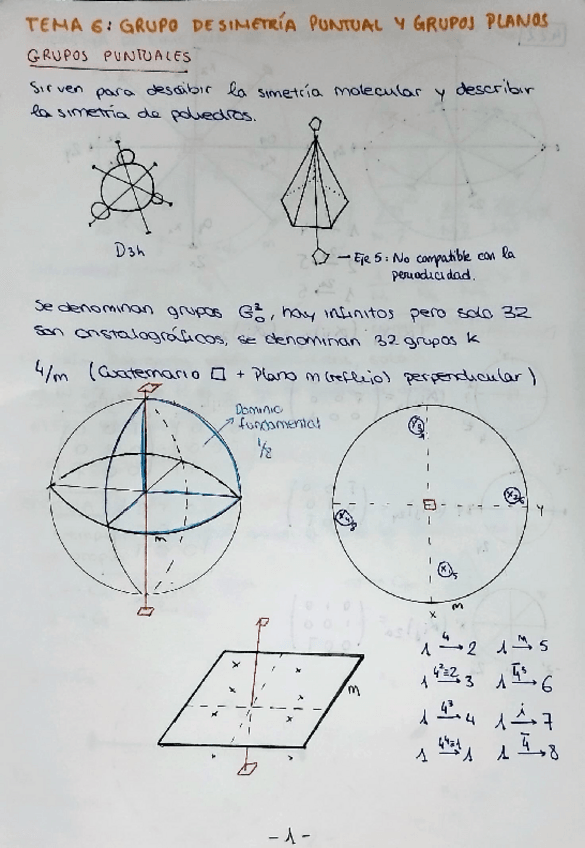 TEMA 6: GRUPO DE SIMETRÍA PUNTUAL Y GRUPOS PLANOS
GRUPOS PUNTUALES
Sirven para describir la simetría molecular y describir
la simetría de poliedros.
D3h
Eje 5: No compatible con la
periodicidad.
Se denominan grupos G³₀, hay infinitos pero solo 32
son cristalográficos, se denominan 32 grupos k
4/m (Cuaternario □ + Plano m (reflejo) perpendicular)
Dominio
fundamental
1/8
m
y
x m
m
1 4→ 2 1 m→ 5
1 4²=2→ 3 1 4̅³→ 6
1 4³→ 4 1 i→ 7
1 4⁴=1→ 1 1 4̅→ 8
- 1 -